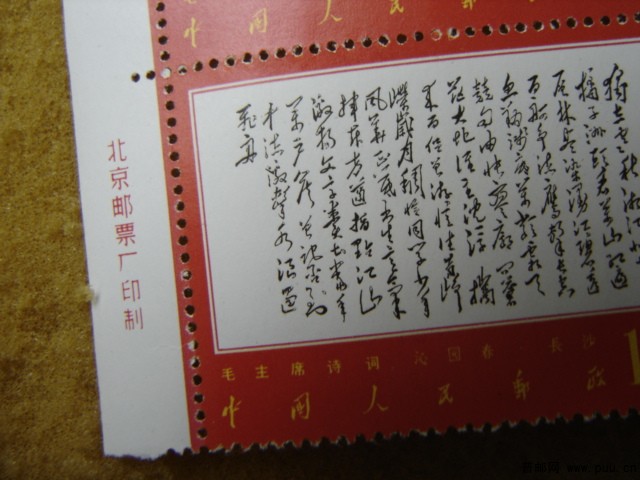 中国人民邮
独立寒秋湘江
橘子洲头看万山红遍
层林尽染漫江碧透
百舸争流鹰击长空
鱼翔浅底万类霜天
竞自由怅寥廓问苍
茫大地谁主沉浮携
来百侣曾游忆往昔峥
嵘岁月稠恰同学少年
风华正茂书生意气
挥斥方遒指点江山
激扬文字粪土当年
万户侯曾记否到
中流击水浪遏
飞舟
北京邮票厂印制
毛主席诗词 沁园春·长沙
中国人民邮政
www.puu.cn